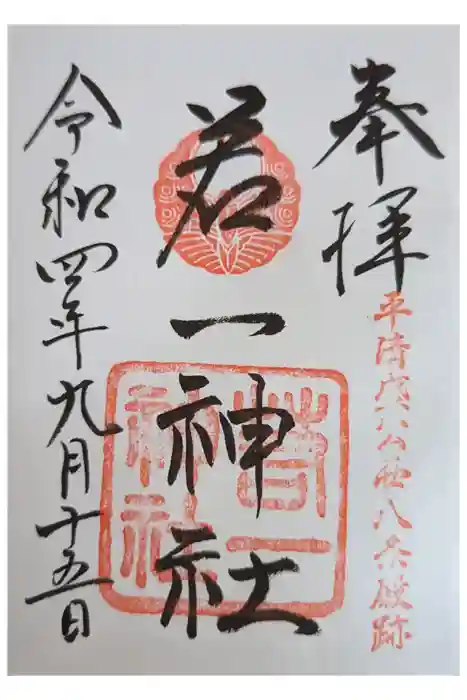 奉拝
平清盛公西八条殿跡
若一神社
若一
神社
令和四年九月十五日